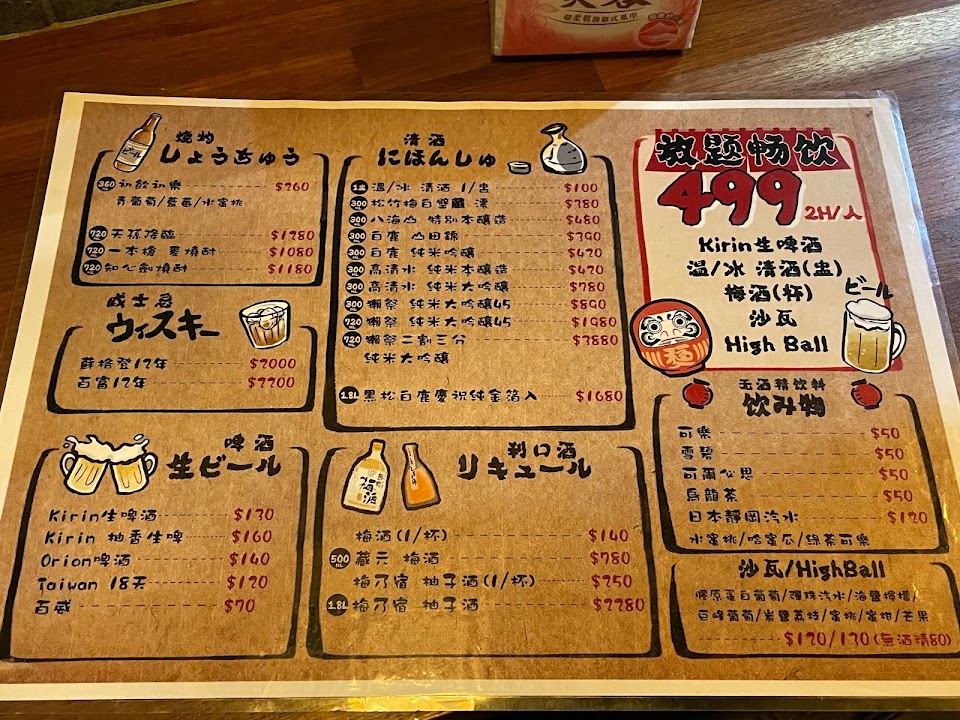 燒炒
しょうちゅう
360ML 初飲初樂 $260
青葡萄/藍莓/水蜜桃
720ML 天孫降臨 $1280
720ML 一本槍 麦燒酎 $1080
720ML 知心劍燒酎 $1180
威士忌
ウィスキー
蘇格登12年 $2000
百富12年 $2200
啤酒
生ビール
Kirin生啤酒 $130
Kirin 柚香生啤 $160
Orion啤酒 $140
Taiwan 18天 $120
百威 $70
清酒
にほんしゅ
1盅 溫/冰 清酒 1/盅 $100
300ML 松竹梅白壁藏 澪 $380
300ML 八海山 特別本釀造 $480
300ML 白鹿 山田錦 $390
300ML 白鹿 純米吟釀 $420
300ML 高清水 純米本釀造 $420
300ML 高清水 純米大吟釀 $780
300ML 獺祭 純米大吟釀45 $890
720ML 獺祭 純米大吟釀45 $1980
720ML 獺祭二割三分 $3880
純米大吟釀
1.8L 黑松白鹿慶祝純金箔入 $1680
利口酒
リキュール
梅酒(1/杯) $140
500ML 蔵元 梅酒 $780
梅乃宿 柚子酒(1/杯) $250
1.8L 梅乃宿 柚子酒 $2280
放题畅饮
499 2H/人
Kirin生啤酒
溫/冰 清酒(盅)
梅酒(杯)
沙瓦
High Ball
ビール
福
无酒精饮料
飲み物
可樂 $50
雪碧 $50
可爾必思 $50
烏龍茶 $50
日本靜岡汽水 $120
水蜜桃/哈蜜瓜/綠茶可樂
沙瓦/HighBall
膠原蛋白葡萄/彈珠汽水/海鹽檸檬/
巨峰葡萄/岩鹽荔枝/蜜桃/蜜柑/芒果
$120/130(無酒精80)